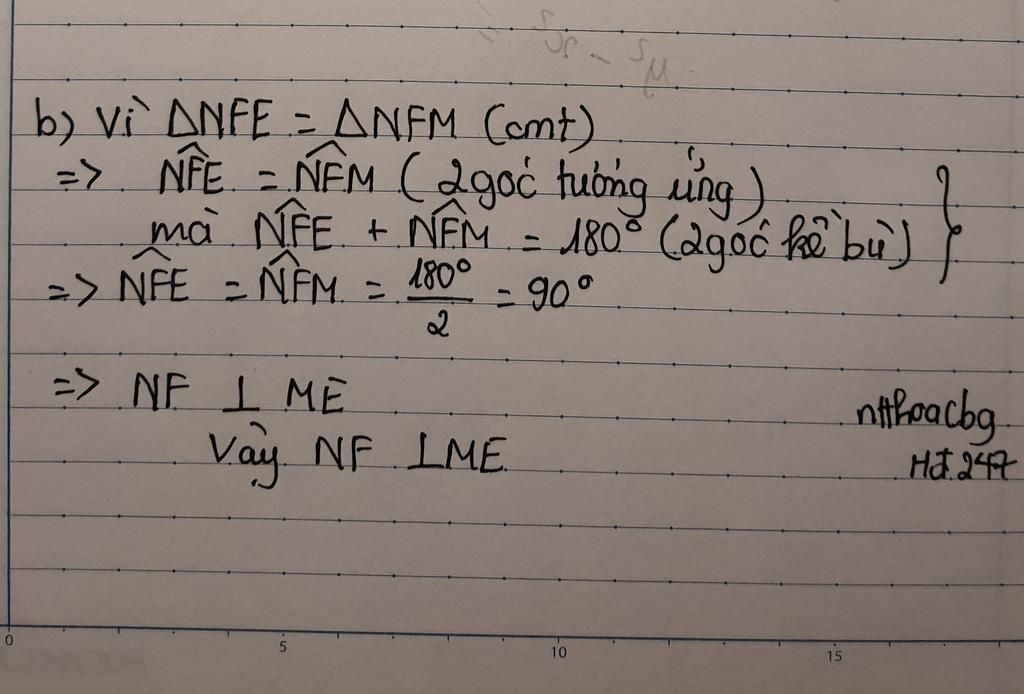 b) Vì ΔNFE = ΔNFM (cmt)
=> N̂FE = N̂FM (2 góc tương ứng)
mà N̂FE + N̂FM = 180° (2 góc kề bù) }
=> N̂FE = N̂FM = 180°/2 = 90°
=> NF ⊥ ME
Vậy NF ⊥ ME
ntthoacbg
Hđ.247
0 5 10 15